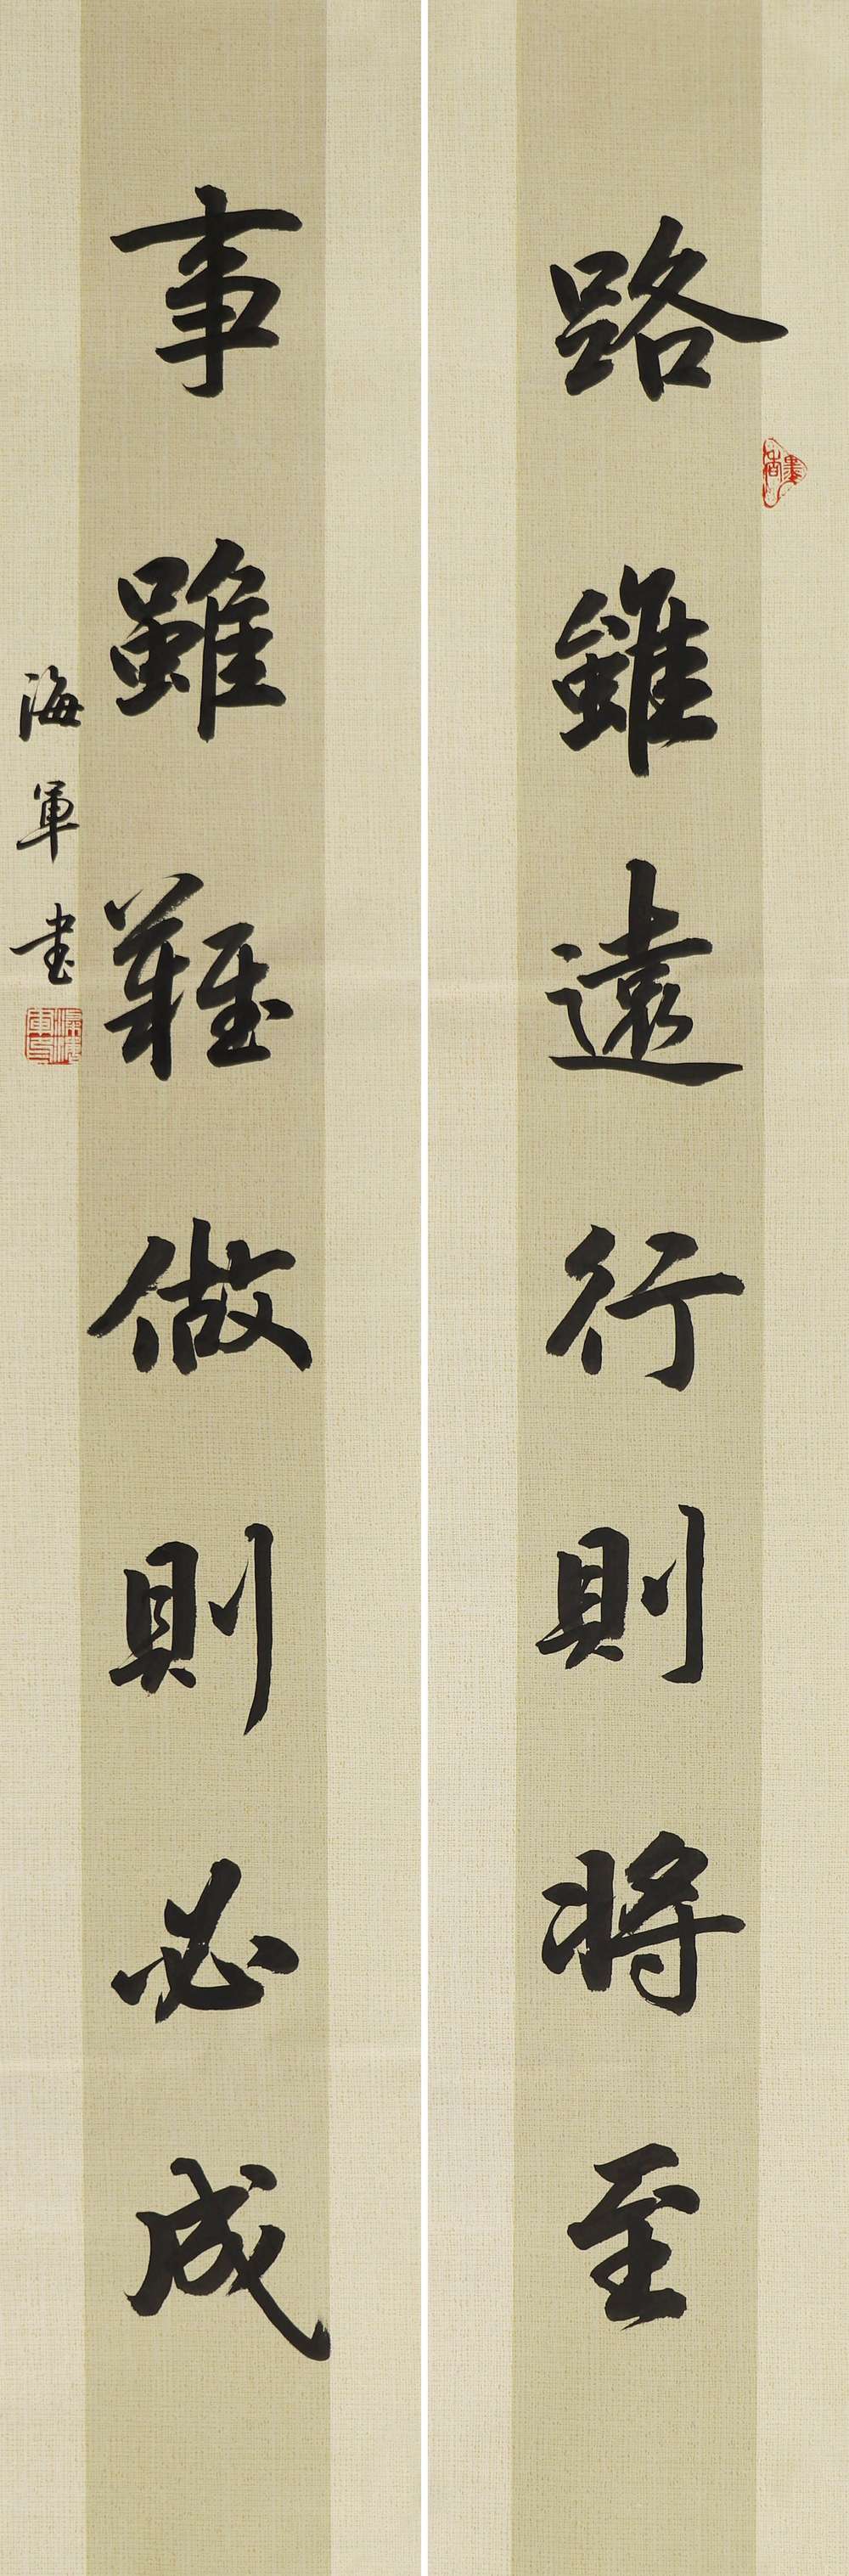 路雖遠行則將至
事雖難做則必成
海軍书
墨香